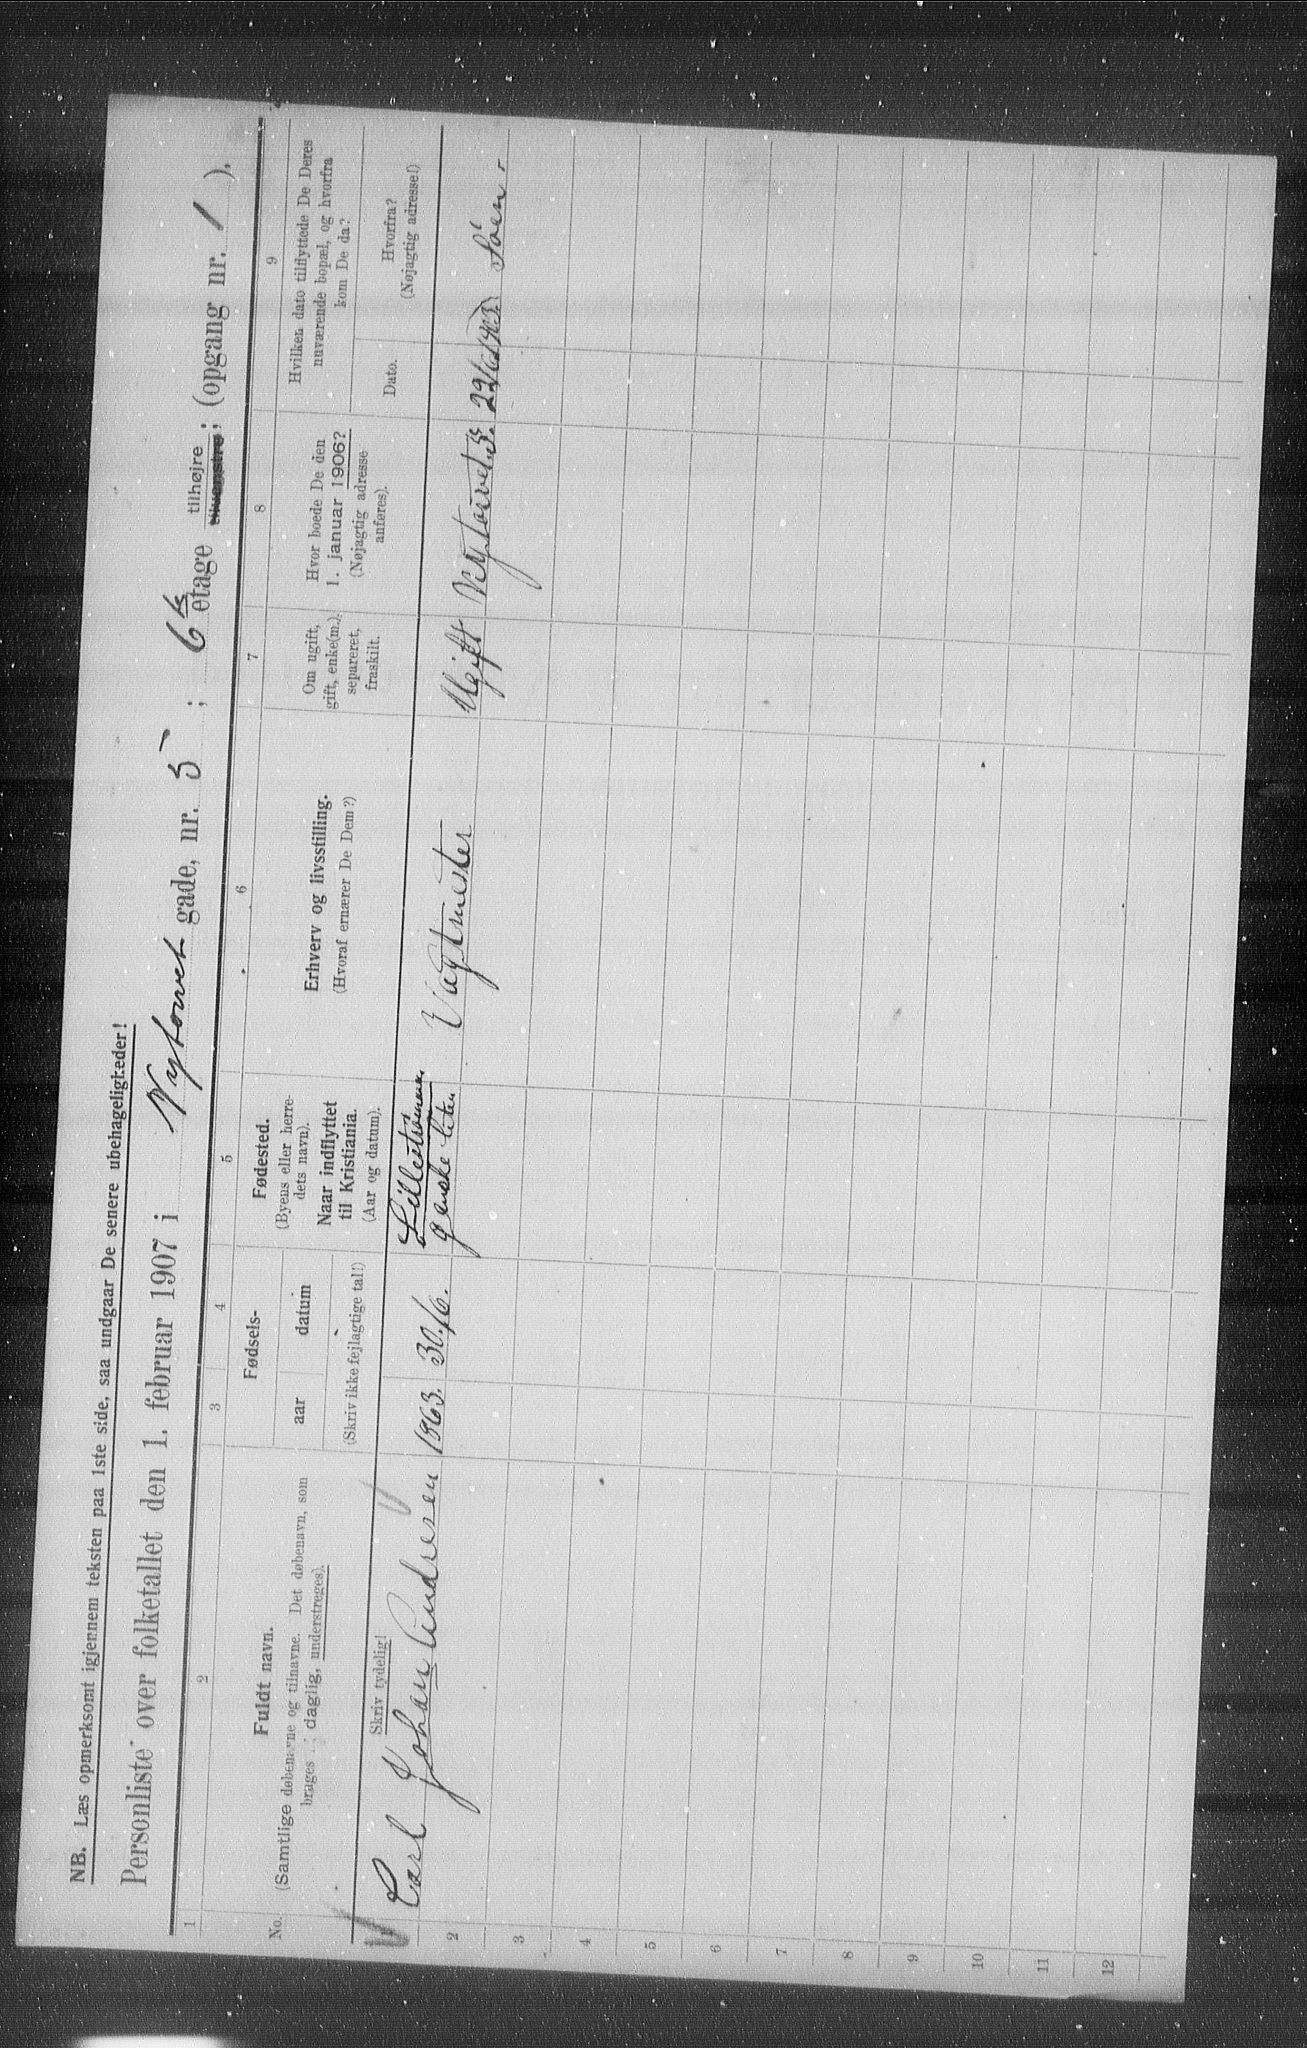 NB. Læs opmerksomt igjennem teksten paa 1ste side, saa undgaar De senere ubehageligheder!
Personliste over folketallet den 1. februar 1907 i Nytorvet gade, nr. 5 ; 6te etage tilhøjre tilvenstre; (opgang nr. 1 ).
1 2 3 4 5 6 7 8 9
No.
Fuldt navn.
(Samtlige døbenavne og tilnavne. Det døbenavn, som
bruges daglig, understreges).
Skriv tydelig!
Fødsels-
aar datum
(Skriv ikke fejlagtige tal!)
Fødested.
(Byens eller herre-
dets navn).
Naar indflyttet
til Kristiania.
(Aar og datum).
Erhverv og livsstilling.
(Hvoraf ernærer De Dem?)
Om ugift,
gift, enke(m.),
separeret,
fraskilt.
Hvor boede De den
1. januar 1906?
(Nøjagtig adresse
anføres).
Hvilken dato tilflyttede De Deres
nuværende bopæl, og hvorfra
kom De da?
Dato.
Hvorfra?
(Nøjagtig adresse!)
1 Carl Johan Andresen 1863. 30/6. Lillestrømmen ganske liten Vagtmester Ugift Nytorvet 5.
2
3
4
5
6
7
8
9
10
11
12